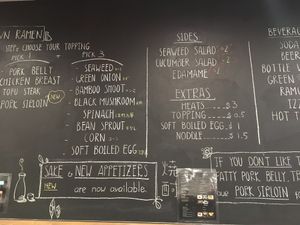 WN RAMEN
STEP 2 CHOOSE YOUR TOPPING
PICK 1
PORK BELLY
CHICKEN BREAST
TOFU STEAK
PORK SIRLOIN NEW
PICK 3
- SEAWEED
- GREEN ONION
- BAMBOO SHOOT
- BLACK MUSHROOM
SPINACH
- BEAN SPROUT
- CORN
- SOFT BOILED EGG
SAKE & NEW APPETIZERS
NEW are now available.
SIDES
SEAWEED SALAD - 2
CUCUMBER SALAD - 2
EDAMAME - 2
EXTRAS
MEATS - $ 3
TOPPING - $ 0.5
SOFT BOILED EGG - $ 1
NOODLE - $ 1.5
BEVERA
SODA
BEER
BOTTLE W
GREEN
RAMUN
ICED
HOT T
IF YOU DON'T LIKE
FATTY PORK BELLY, TH
our PORK SIRLOIN fo